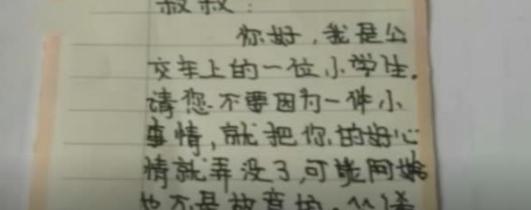 叔叔：
你好，我是公
交车上的一位小学生。
请您不要因为一件小
事情，就把你的好心
情就弄没了，可能阿姨
也不是故意的，